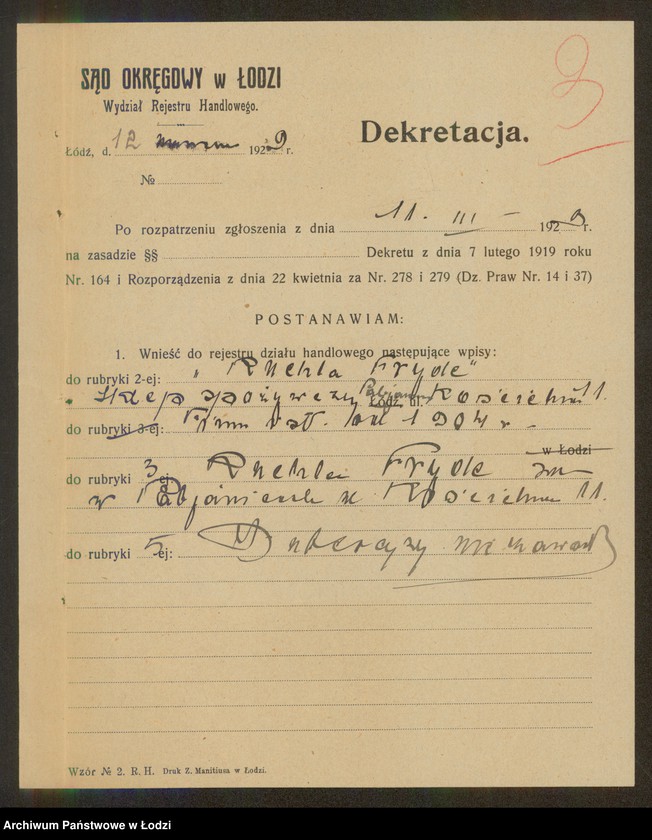 SĄD OKRĘGOWY w ŁODZI
Wydział Rejestru Handlowego.
3
Łódź, d. 12 marca 1929 r.
Dekretacja.
№
Po rozpatrzeniu zgłoszenia z dnia 11. III – 1929 r.
na zasadzie §§ Dekretu z dnia 7 lutego 1919 roku
Nr. 164 i Rozporządzenia z dnia 22 kwietnia za Nr. 278 i 279 (Dz. Praw Nr. 14 i 37)
POSTANAWIAM:
1. Wnieść do rejestru działu handlowego następujące wpisy:
do rubryki 2-ej: „Ruchla Fryde"
Sklep spożywczy Łódź, ul. Kościelna 11.
do rubryki 3-ej: Firma istn. od 1904 r.
w Łodzi
do rubryki 3 ej Ruchla Fryde zam
w Pabjanicach ul. Kościelna 11.
do rubryki 5 ej: Intercyzy nie zawarła
Wzór № 2. R. H. Druk Z. Manitiusa w Łodzi.
Archiwum Państwowe w Łodzi